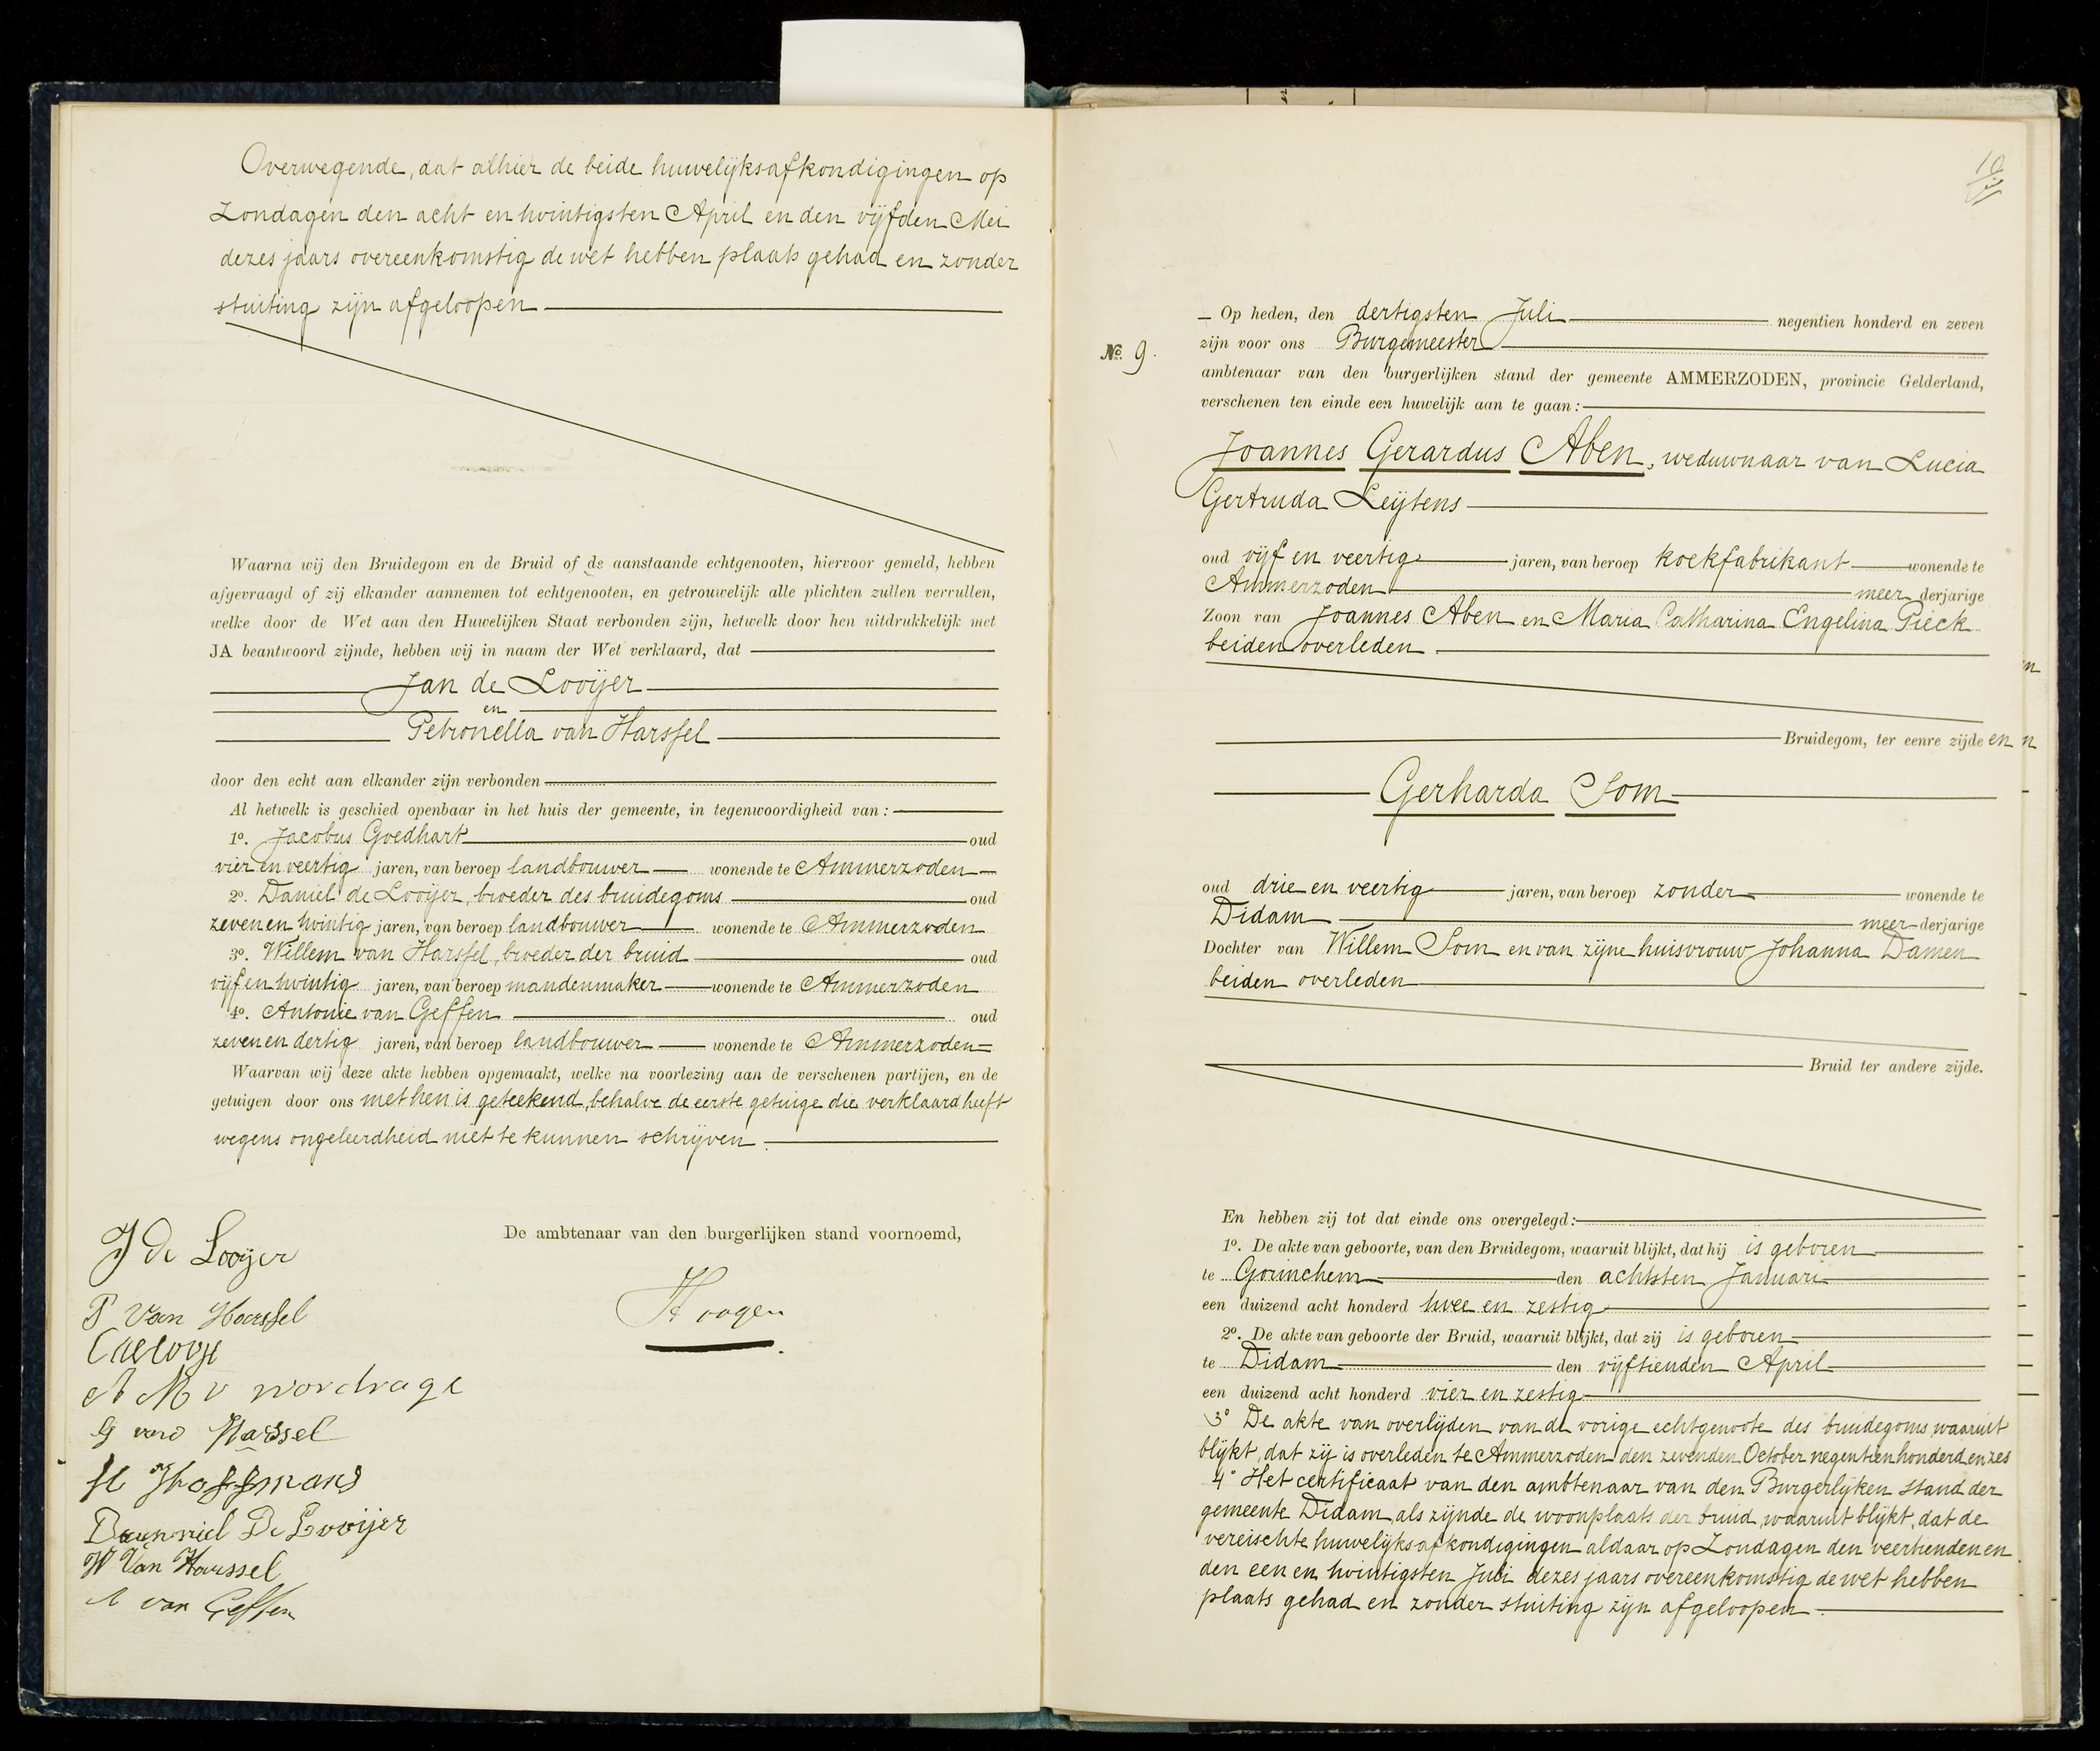 Overwegende, dat alhier de beide huwelijksafkondigingen op
Zondagen den acht en twintigsten April en den vijfden Mei
dezes jaars overeenkomstig de wet hebben plaats gehad en zonder
stuiting zijn afgeloopen
Waarna wij den Bruidegom en de Bruid of de aanstaande echtgenooten, hiervoor gemeld, hebben
afgevraagd of zij elkander aannemen tot echtgenooten, en getrouwelijk alle plichten zullen vervullen,
welke door de Wet aan den Huwelijken Staat verbonden zijn, hetwelk door hen uitdrukkelijk met
JA beantwoord zijnde, hebben wij in naam der Wet verklaard, dat
Jan de Looijer
en
Petronella van Harssel
door den echt aan elkander zijn verbonden
Al hetwelk is geschied openbaar in het huis der gemeente, in tegenwoordigheid van:
1o. Jacobus Goedhart oud
vier en veertig jaren, van beroep landbouwer wonende te Ammerzoden
2o. Daniel de Looijer, broeder des bruidegoms oud
zeven en twintig jaren, van beroep landbouwer wonende te Ammerzoden
3o. Willem van Harssel, broeder der bruid oud
vijf en twintig jaren, van beroep mandenmaker wonende te Ammerzoden
4o. Antonie van Geffen oud
zeven en dertig jaren, van beroep landbouwer wonende te Ammerzoden
Waarvan wij deze akte hebben opgemaakt, welke na voorlezing aan de verschenen partijen, en de
getuigen door ons met hen is geteekend, behalve de eerste getuige die verklaard heeft
wegens ongeleerdheid niet te kunnen schrijven.
De ambtenaar van den burgerlijken stand voornoemd,
J de Looijer
P van Harssel
A M v wordrage
G van Harssel
Danniel De Looijer
W Van Harssel
A van Geffen
10
No. 9.
Op heden, den dertigsten Juli negentien honderd en zeven
zijn voor ons Burgemeester
ambtenaar van den burgerlijken stand der gemeente AMMERZODEN, provincie Gelderland,
verschenen ten einde een huwelijk aan te gaan:
Joannes Gerardus Aben, weduwnaar van Lucia
Gertruda Leijtens
oud vijf en veertig jaren, van beroep koekfabrikant wonende te
Ammerzoden meer derjarige
Zoon van Joannes Aben en Maria Catharina Engelina Pieck
beiden overleden
Bruidegom, ter eenre zijde en
Gerharda Som
oud drie en veertig jaren, van beroep zonder wonende te
Didam meer derjarige
Dochter van Willem Som en van zijne huisvrouw Johanna Damen
beiden overleden
Bruid ter andere zijde.
En hebben zij tot dat einde ons overgelegd:
1o. De akte van geboorte, van den Bruidegom, waaruit blijkt, dat hij is geboren
te Gorinchem den achtsten Januari
een duizend acht honderd twee en zestig
2o. De akte van geboorte der Bruid, waaruit blijkt, dat zij is geboren
te Didam den vijftienden April
een duizend acht honderd vier en zestig
3o De akte van overlijden van de vorige echtgenoote des bruidegoms waaruit
blijkt, dat zij is overleden te Ammerzoden den zevenden October negentienhonderd en zes
4o Het certificaat van den ambtenaar van den Burgerlijken Stand der
gemeente Didam, als zijnde de woonplaats der bruid, waaruit blijkt, dat de
vereischte huwelijksafkondigingen aldaar op Zondagen den veertienden en
den een en twintigsten Juli dezes jaars overeenkomstig de wet hebben
plaats gehad en zonder stuiting zijn afgeloopen